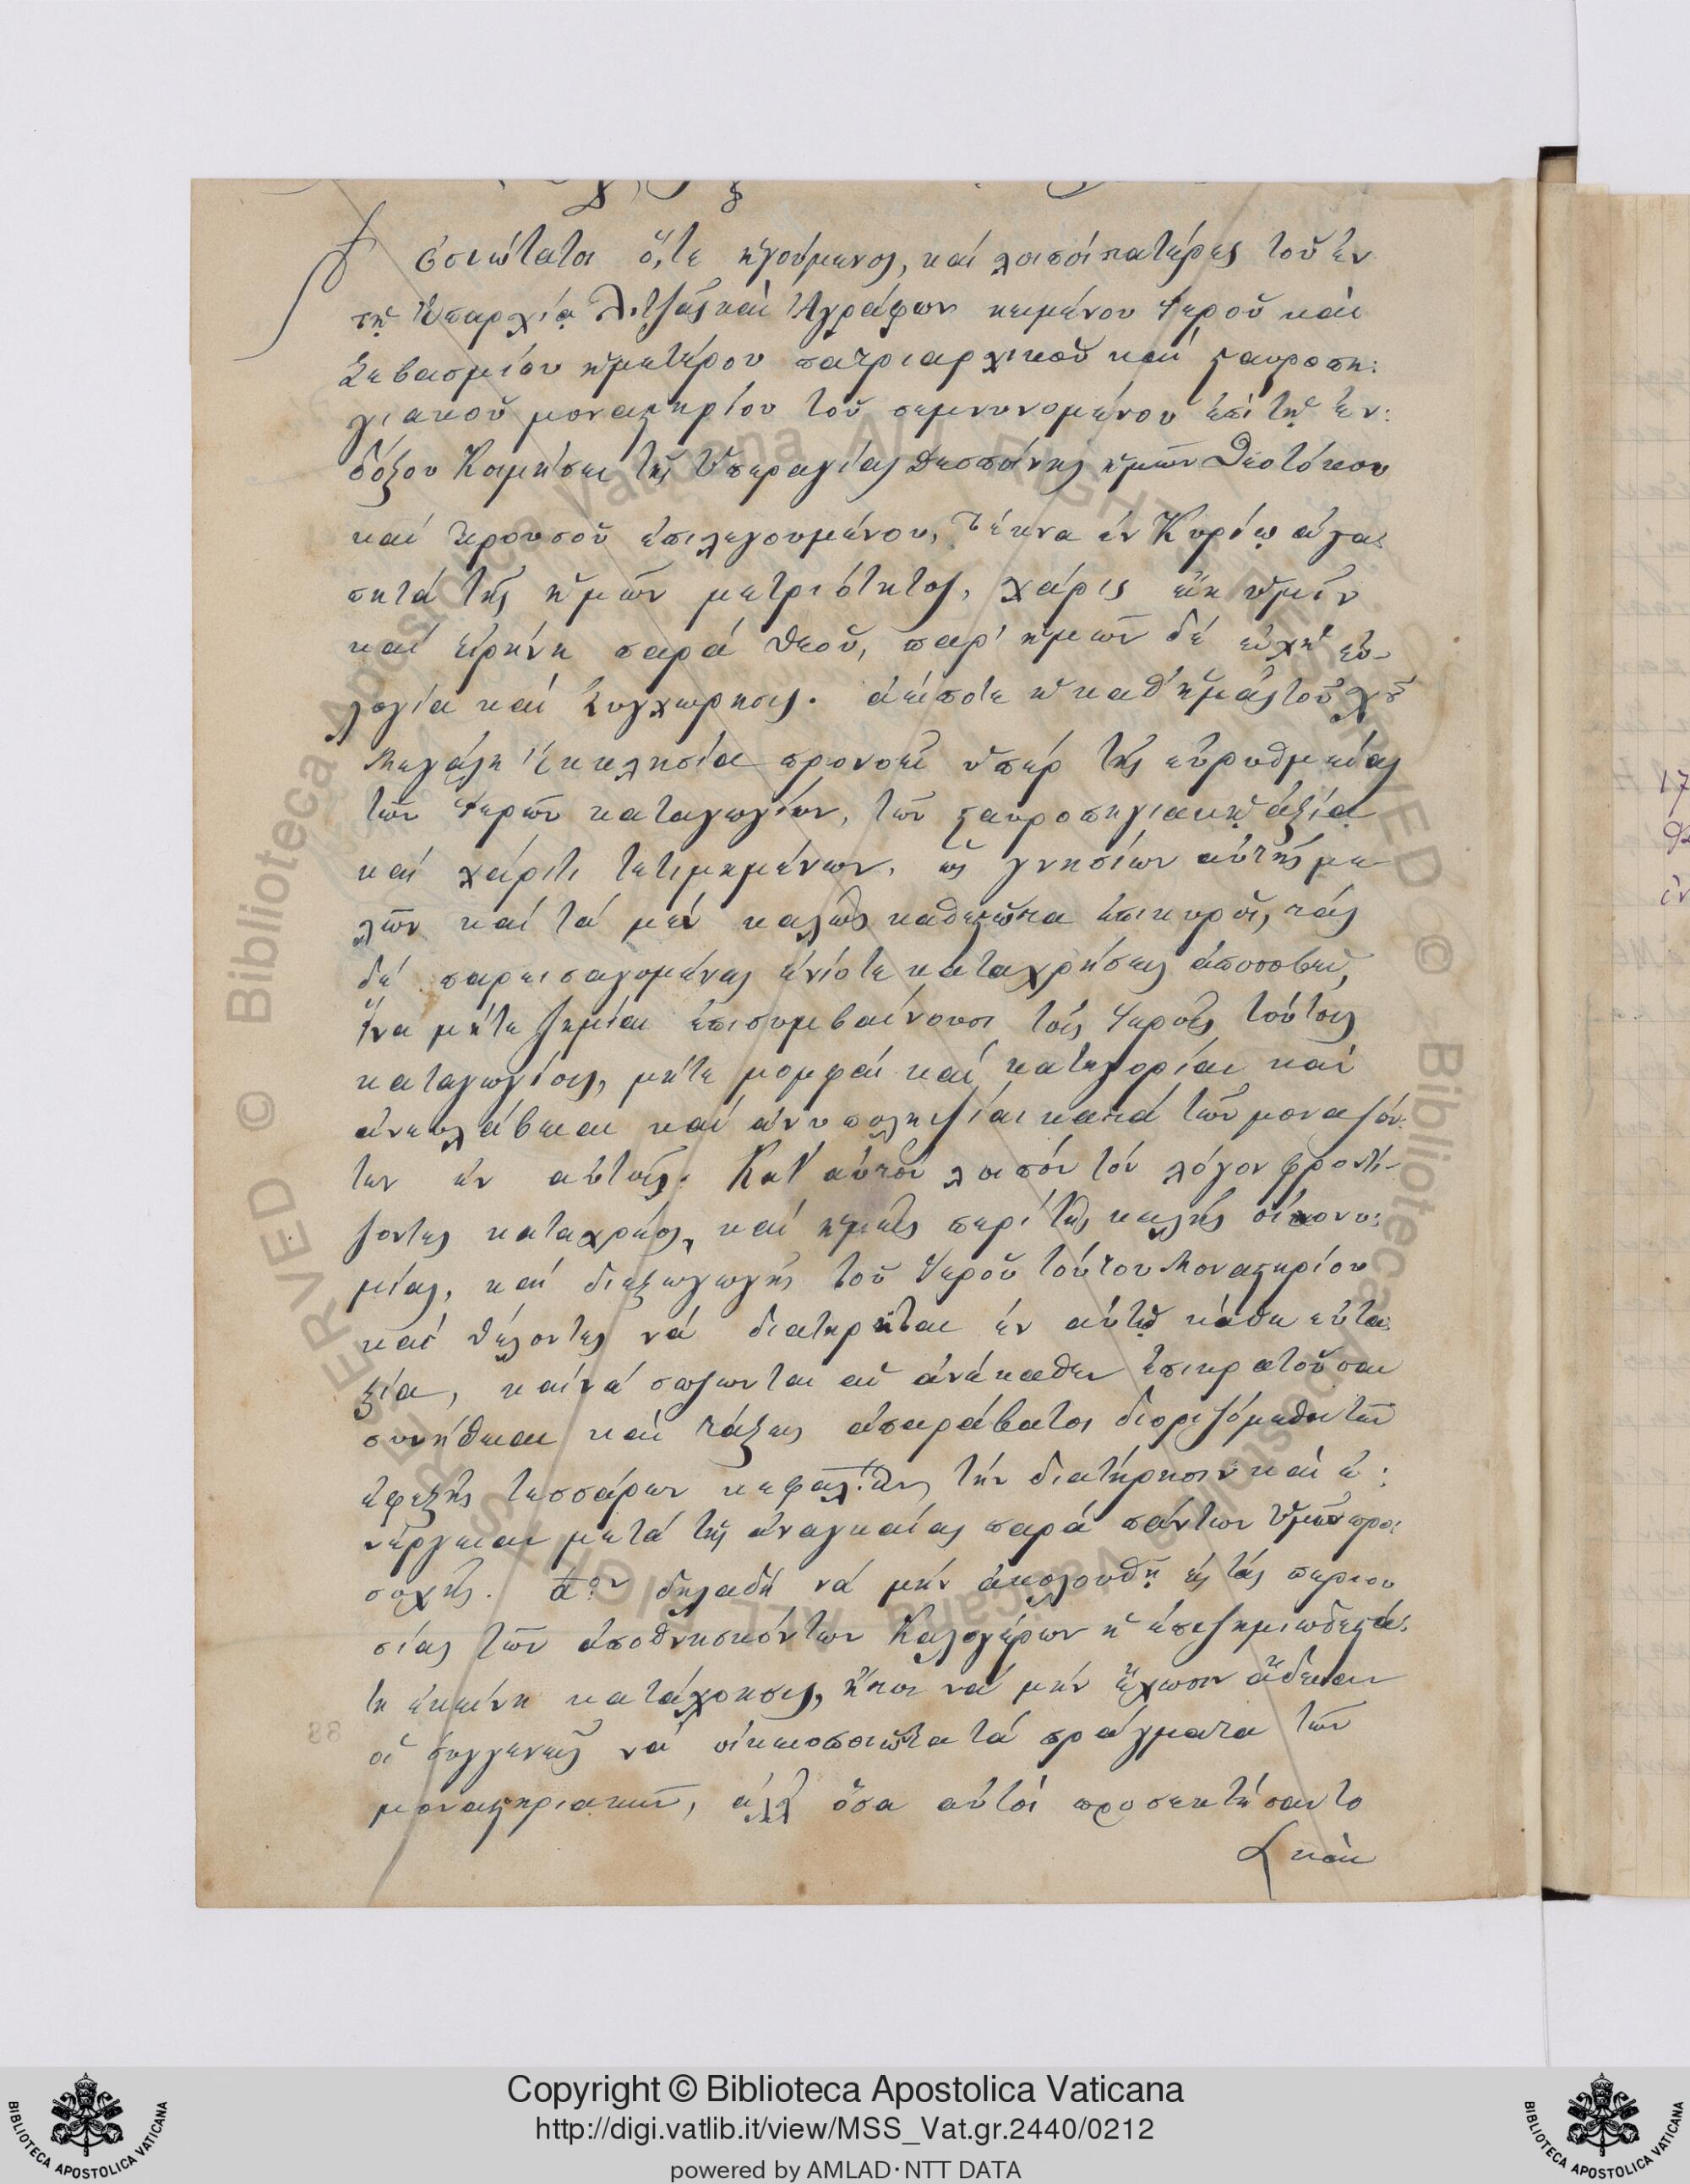 Ὁσιώτατοι ὅ,τε ἡγούμενος, καί λοιποί πατέρες τοῦ ἐν
τῇ Ἐπαρχίᾳ Λιτζᾶς καί Ἀγράφων κειμένου Ἱεροῦ καί
Σεβασμίου ἡμετέρου πατριαρχικοῦ καί σταυροπη:
γιακοῦ μοναστηρίου τοῦ σεμνυνομένου ἐπί τῇ ἐν:
δόξου Κοιμήσει τῆς Ὑπεραγίας Δεσποίνης ἡμῶν Θεοτόκου
καί Προυσοῦ ἐπιλεγουμένου, Τέκνα ἐν Κυρίῳ ἀγα:
πητά τῆς ἡμῶν μετριότητος, χάρις εἴη ὑμῖν
καί εἰρήνη παρά Θεοῦ, παρ' ἡμῶν δέ εὐχή εὐ-
λογία καί Συγχώρησις. ἀείποτε ἡ καθ' ἡμᾶς τοῦ χυ
Μεγάλη Ἐκκλησία προνοεῖ ὑπέρ τῆς εὐρυθμείας
τῶν Ἱερῶν καταγωγίων, τῶν σταυροπηγιακῇ ἀξίᾳ
καί χάριτι τετιμημένων, ὡς γνησίων αὐτῆς με
λῶν καί τά μέν καλῶς καθεστῶτα ἐπικυροῖ, τάς
δέ παρεισαγομένας ἐνίοτε καταχρήσεις ἀποσοβεῖ,
ἵνα μήτε ζημίαι ἐπισυμβαίνουσι τοῖς Ἱεροῖς τούτοις
καταγωγίοις, μήτε μομφαί καί κατηγορίαι καί
ἀνευλάβειαι καί ἀνυποληψίαι κατά τῶν μοναζόν:
των ἐν αὐτοῖς. Κατ' αὐτόν λοιπόν τόν λόγον φροντί-
ζοντες καταχρέος, καί ἡμεῖς περί τῆς καλῆς οἰκονο:
μίας, καί διεξαγωγῆς τοῦ Ἱεροῦ τούτου Μοναστηρίου
καί θέλοντες νά διατηρῆται ἐν αὐτῷ κάθε εὐτα:
ξία, καί νά σώζωνται αἱ ἀνέκαθεν ἐπικρατοῦσαι
συνήθειαι καί τάξεις ἀπαράβατοι διοριζόμεθα τῶν
ἐφεξῆς τεσσάρων κεφαλ:ων, τήν διατήρησιν καί ἐ:
νέργειαν μετά τῆς ἀναγκαίας παρά πάντων ὑμῶν προ:
σοχῆς. αον δηλαδή νά μήν ἀκολουθῇ εἰς τάς περιου
σίας τῶν ἀποθνησκόντων Καλογέρων ἡ ἐπιζημιωδεστά:
τη ἐκείνη κατάχρησις, ἤτοι νά μήν ἔχωσιν ἄδειαν
οἱ συγγενεῖς νά οἰκειοποιῶνται τά πράγματα τῶν
μοναστηριακῶν, ἀλλ' ὅσα αὐτοί προσεκτήσαντο
καί